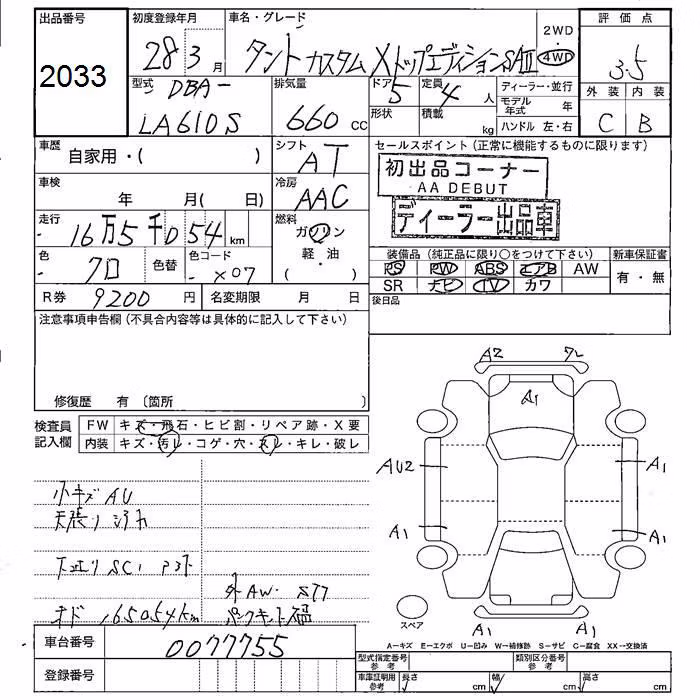 出品番号 初度登録年月 車名・グレード 2WD 評価点
2033 28 3月 タント カスタム XトップエディションSAⅢ 4WD 3.5
型式 DBA- 排気量 ドア 5 定員 4人 ディーラー・並行 外装 内装
LA610S 660cc 形状 積載 kg モデル年式 年 C B
ハンドル 左・右
車歴 自家用・( ) シフト AT セールスポイント(正常に機能するものに限ります)
初出品コーナー
AA DEBUT
車検 年 月( 日) 冷房 AAC
ディーラー出品車
走行 16万5千054km 燃料 ガソリン
軽・油
( )
色 クロ 色替 色コード X07
装備品(純正品に限り○をつけて下さい) 新車保証書
PS PW ABS エアB AW 有・無
SR ナビ TV カワ
R券 9200円 名変期限 月 日 後日品
注意事項申告欄(不具合内容等は具体的に記入して下さい)
修復歴 有 (箇所 )
検査員記入欄 FW キズ・飛石・ヒビ割・リペア跡・X要
内装 キズ・汚レ・コゲ・穴・スレ・キレ・破レ
小キズ AU
天張り
SC1
外AW.
オド 165054km
A2
A1
AU2 A1
A1 A1
スペア A1 A1
A−キズ E−エクボ U−凹み W−補修跡 S−サビ C−腐食 XX−交換済
車台番号 0077755
登録番号
型式指定番号 参考 類別区分番号 参考
車庫証明用 参考 長さ cm 幅 cm 高さ cm